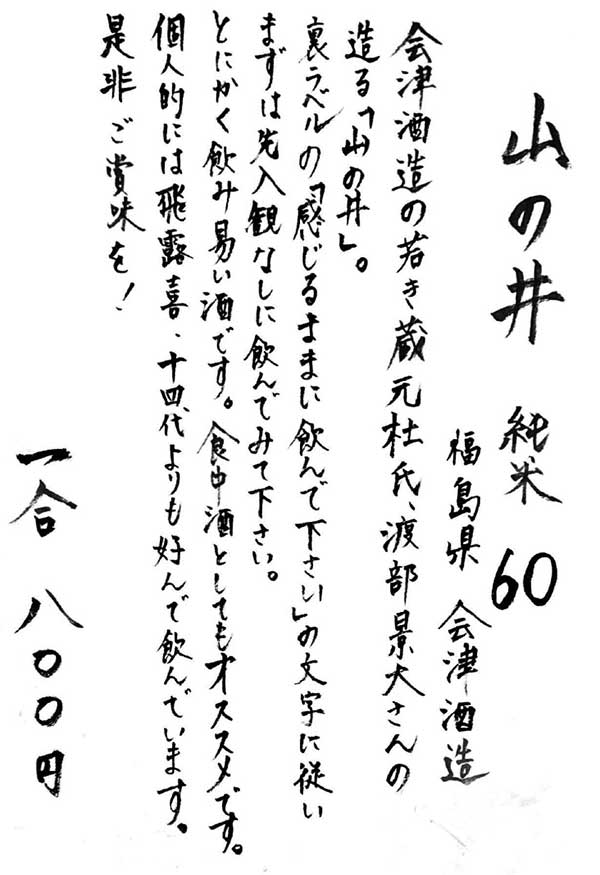 山の井 純米 60
福島県 会津酒造
会津酒造の若き蔵元杜氏、渡部景大さんの
造る「山の井」。
裏ラベルの「感じるままに飲んで下さい」の文字に従い
まずは先入観なしに飲んでみて下さい。
とにかく飲み易い酒です。食中酒としてもオススメです。
個人的には飛露喜、十四代よりも好んで飲んでいます。
是非ご賞味を!
一合 八〇〇円